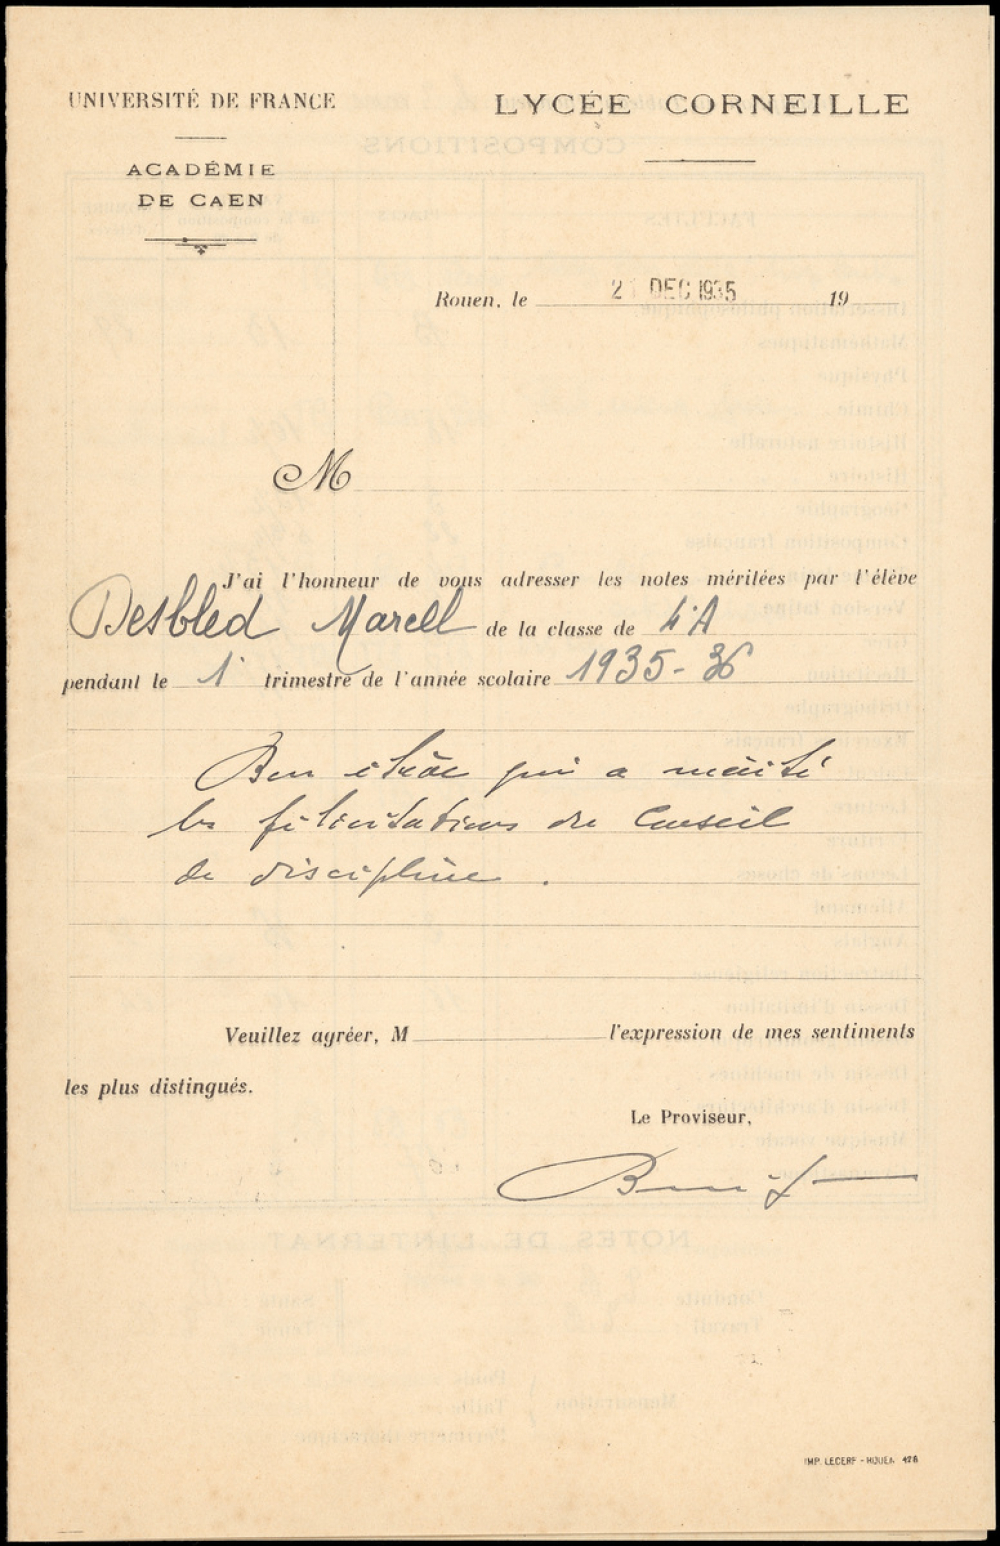 UNIVERSITÉ DE FRANCE
LYCÉE CORNEILLE
ACADÉMIE
DE CAEN
Rouen, le 2 DEC 1935 19
M
J'ai l'honneur de vous adresser les notes méritées par l'élève
Desbled Marcell de la classe de 4 A
pendant le 1 trimestre de l'année scolaire 1935-36
Bon élève qui a mérité
les félicitations du Conseil
de discipline.
Veuillez agréer, M l'expression de mes sentiments
les plus distingués.
Le Proviseur,
IMP. LECERF - ROUEN 426